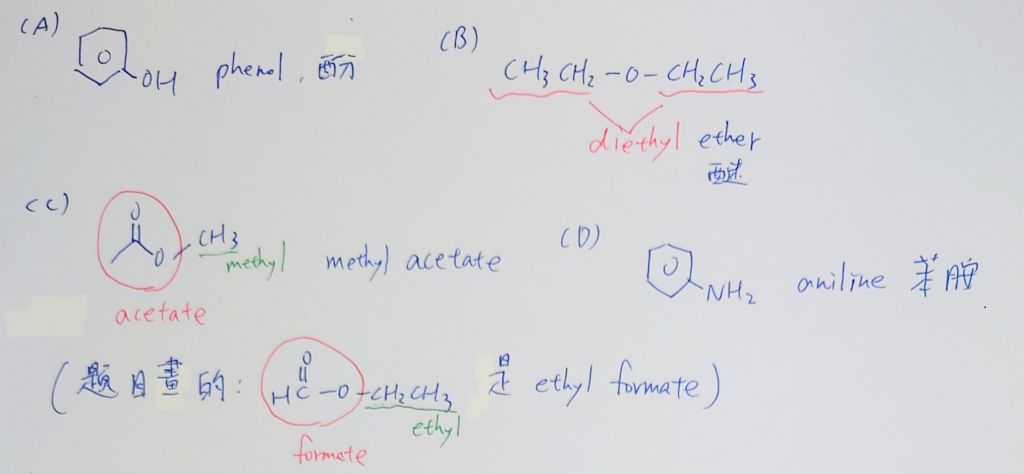 (A)
OH phenol, 酚
(B)
CH3 CH2 -O- CH2CH3
diethyl ether
醚
(C)
O
O CH3
methyl methyl acetate
acetate
(D)
NH2 aniline 苯胺
(題目畫的: HC-O-CH2CH3 是 ethyl formate)
O
ethyl
formate